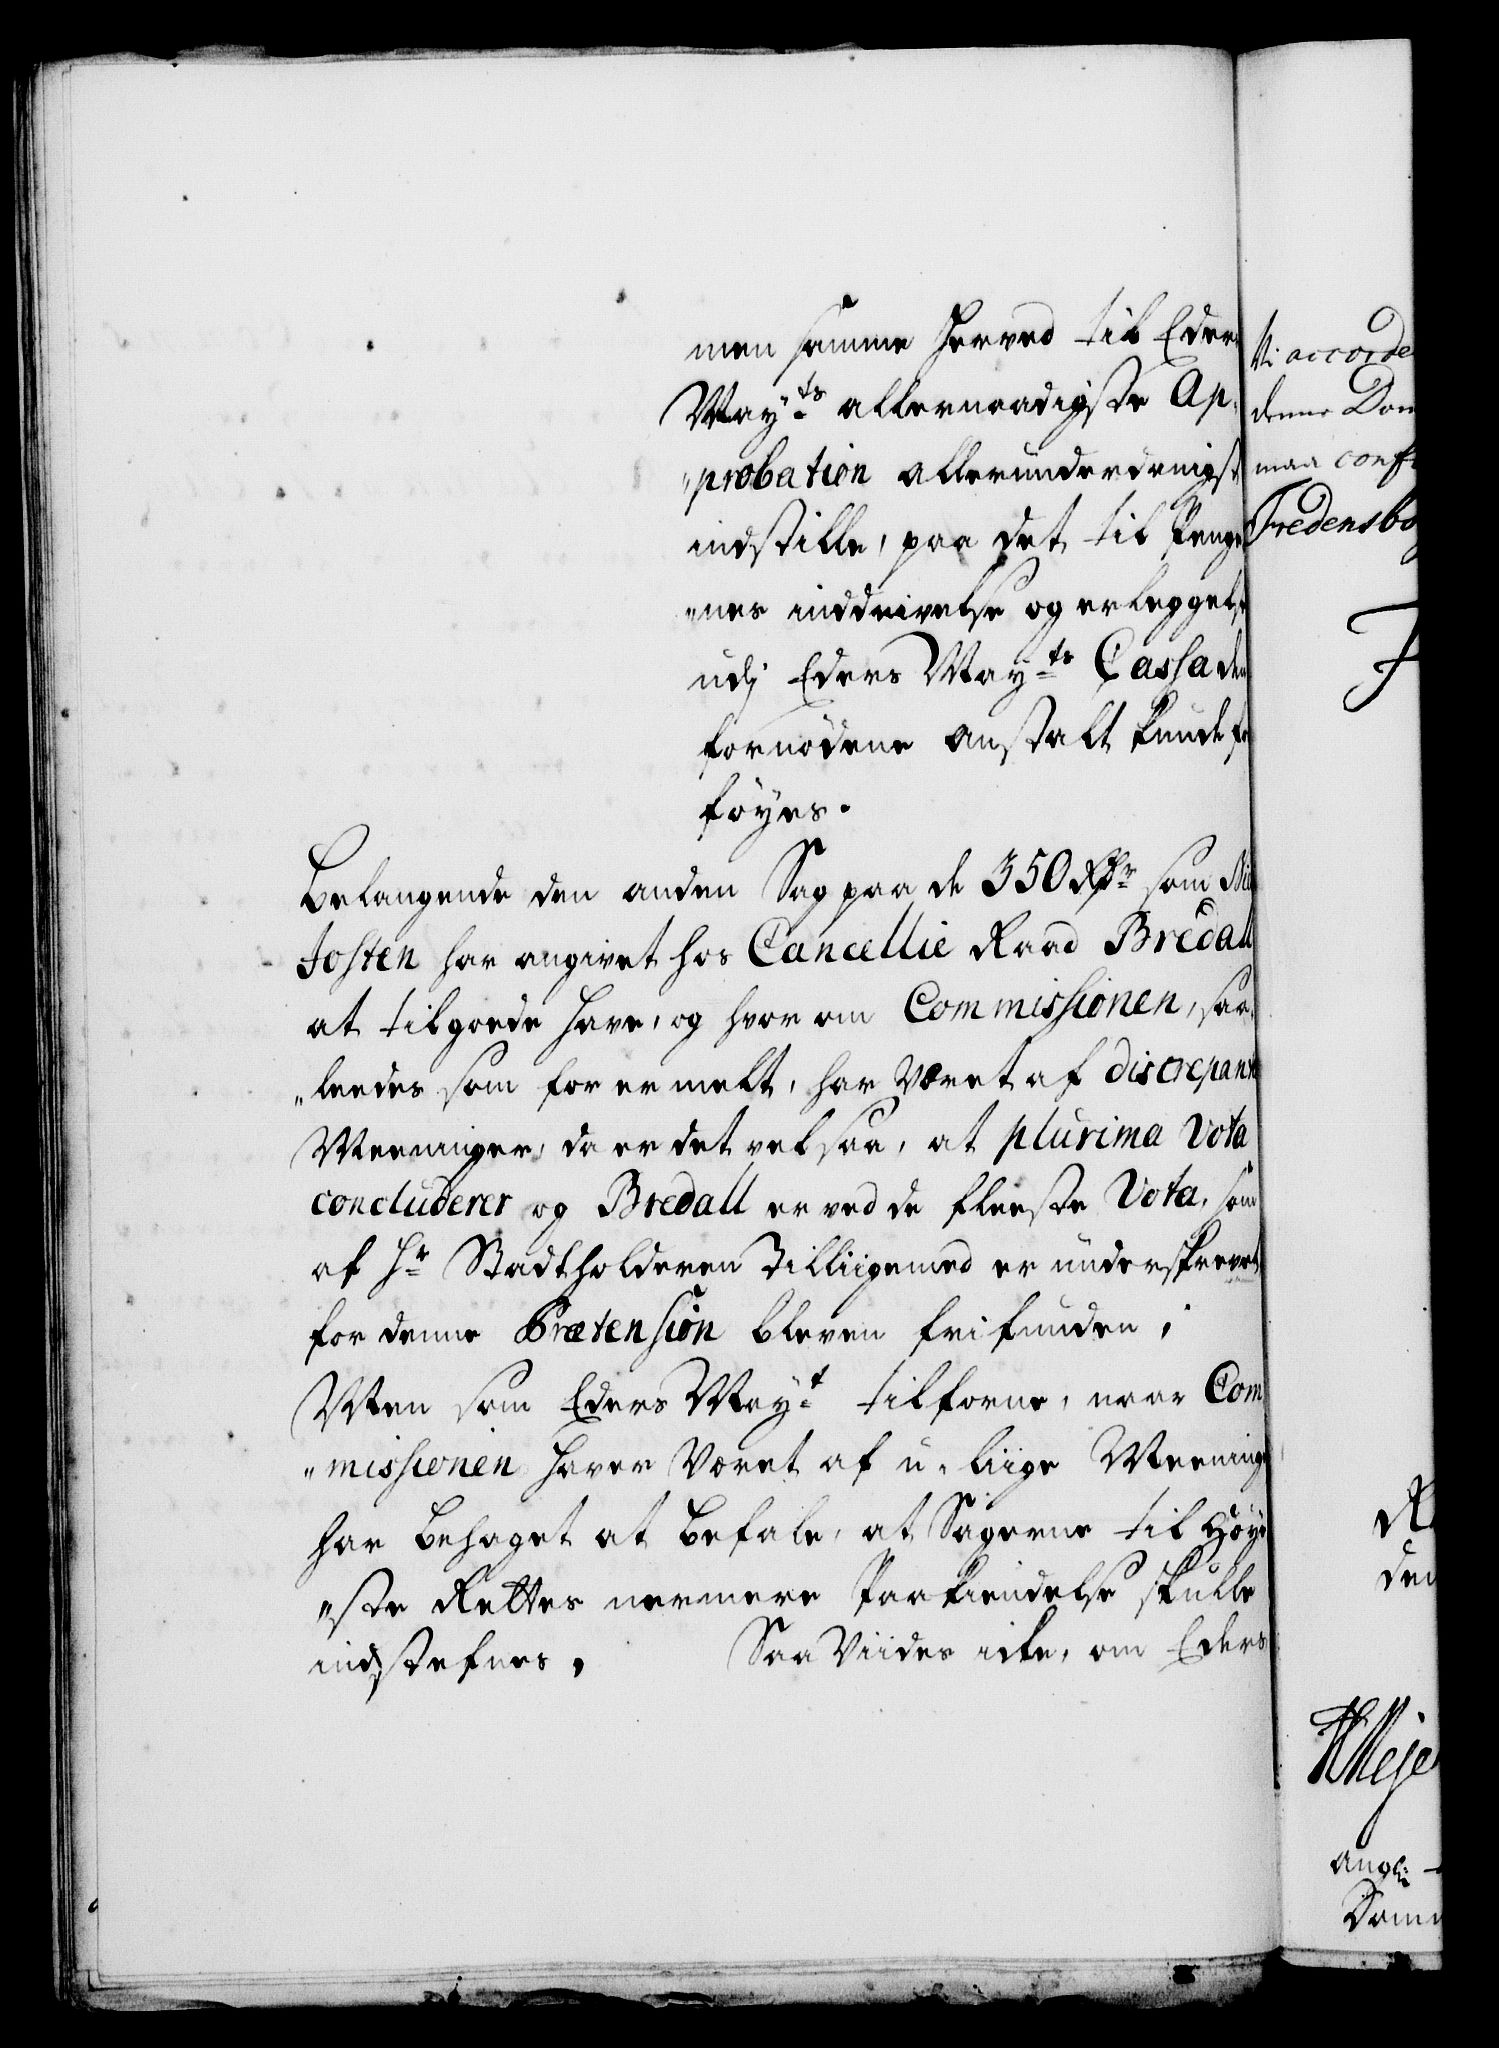 men samme herved til Eders
May:ts allernaadigste Ap„
„probation allerunderdanigst
indstille, paa det til Penge
„nes inddrivelse og erleggelse
udj Eders May:ts Cassa den
fornødene anstalt kunde for
føyes.
Belangende den anden Sag paa de 350 Rdr som
Josten har angivet hos Cancellie Raad Bredall
at tilgoede have, og hvor om Commissionen, saa„
„leedes som før er melt, har været af discrepante
Meeninger, da er det vel saa, at plurima Vota
concluderer og Bredall er ved de fleeste Vota, som
af Hr Stadtholderen Tilliigemed er underskrevet,
for denne Prætension bleven frifunden;
Men som Eders May:t tilforne, naar Com
„missionen haver været af u-liige Meeninger
har behaget at befale, at Sagerne til Høye
„ste Rettes nermere Paakiendelse skulle
indstefnes, Saa Viides icke, om Eders
Vi accorde
denne Dom
maa conf
Fredensbo
F
R
den
angl:
Dom